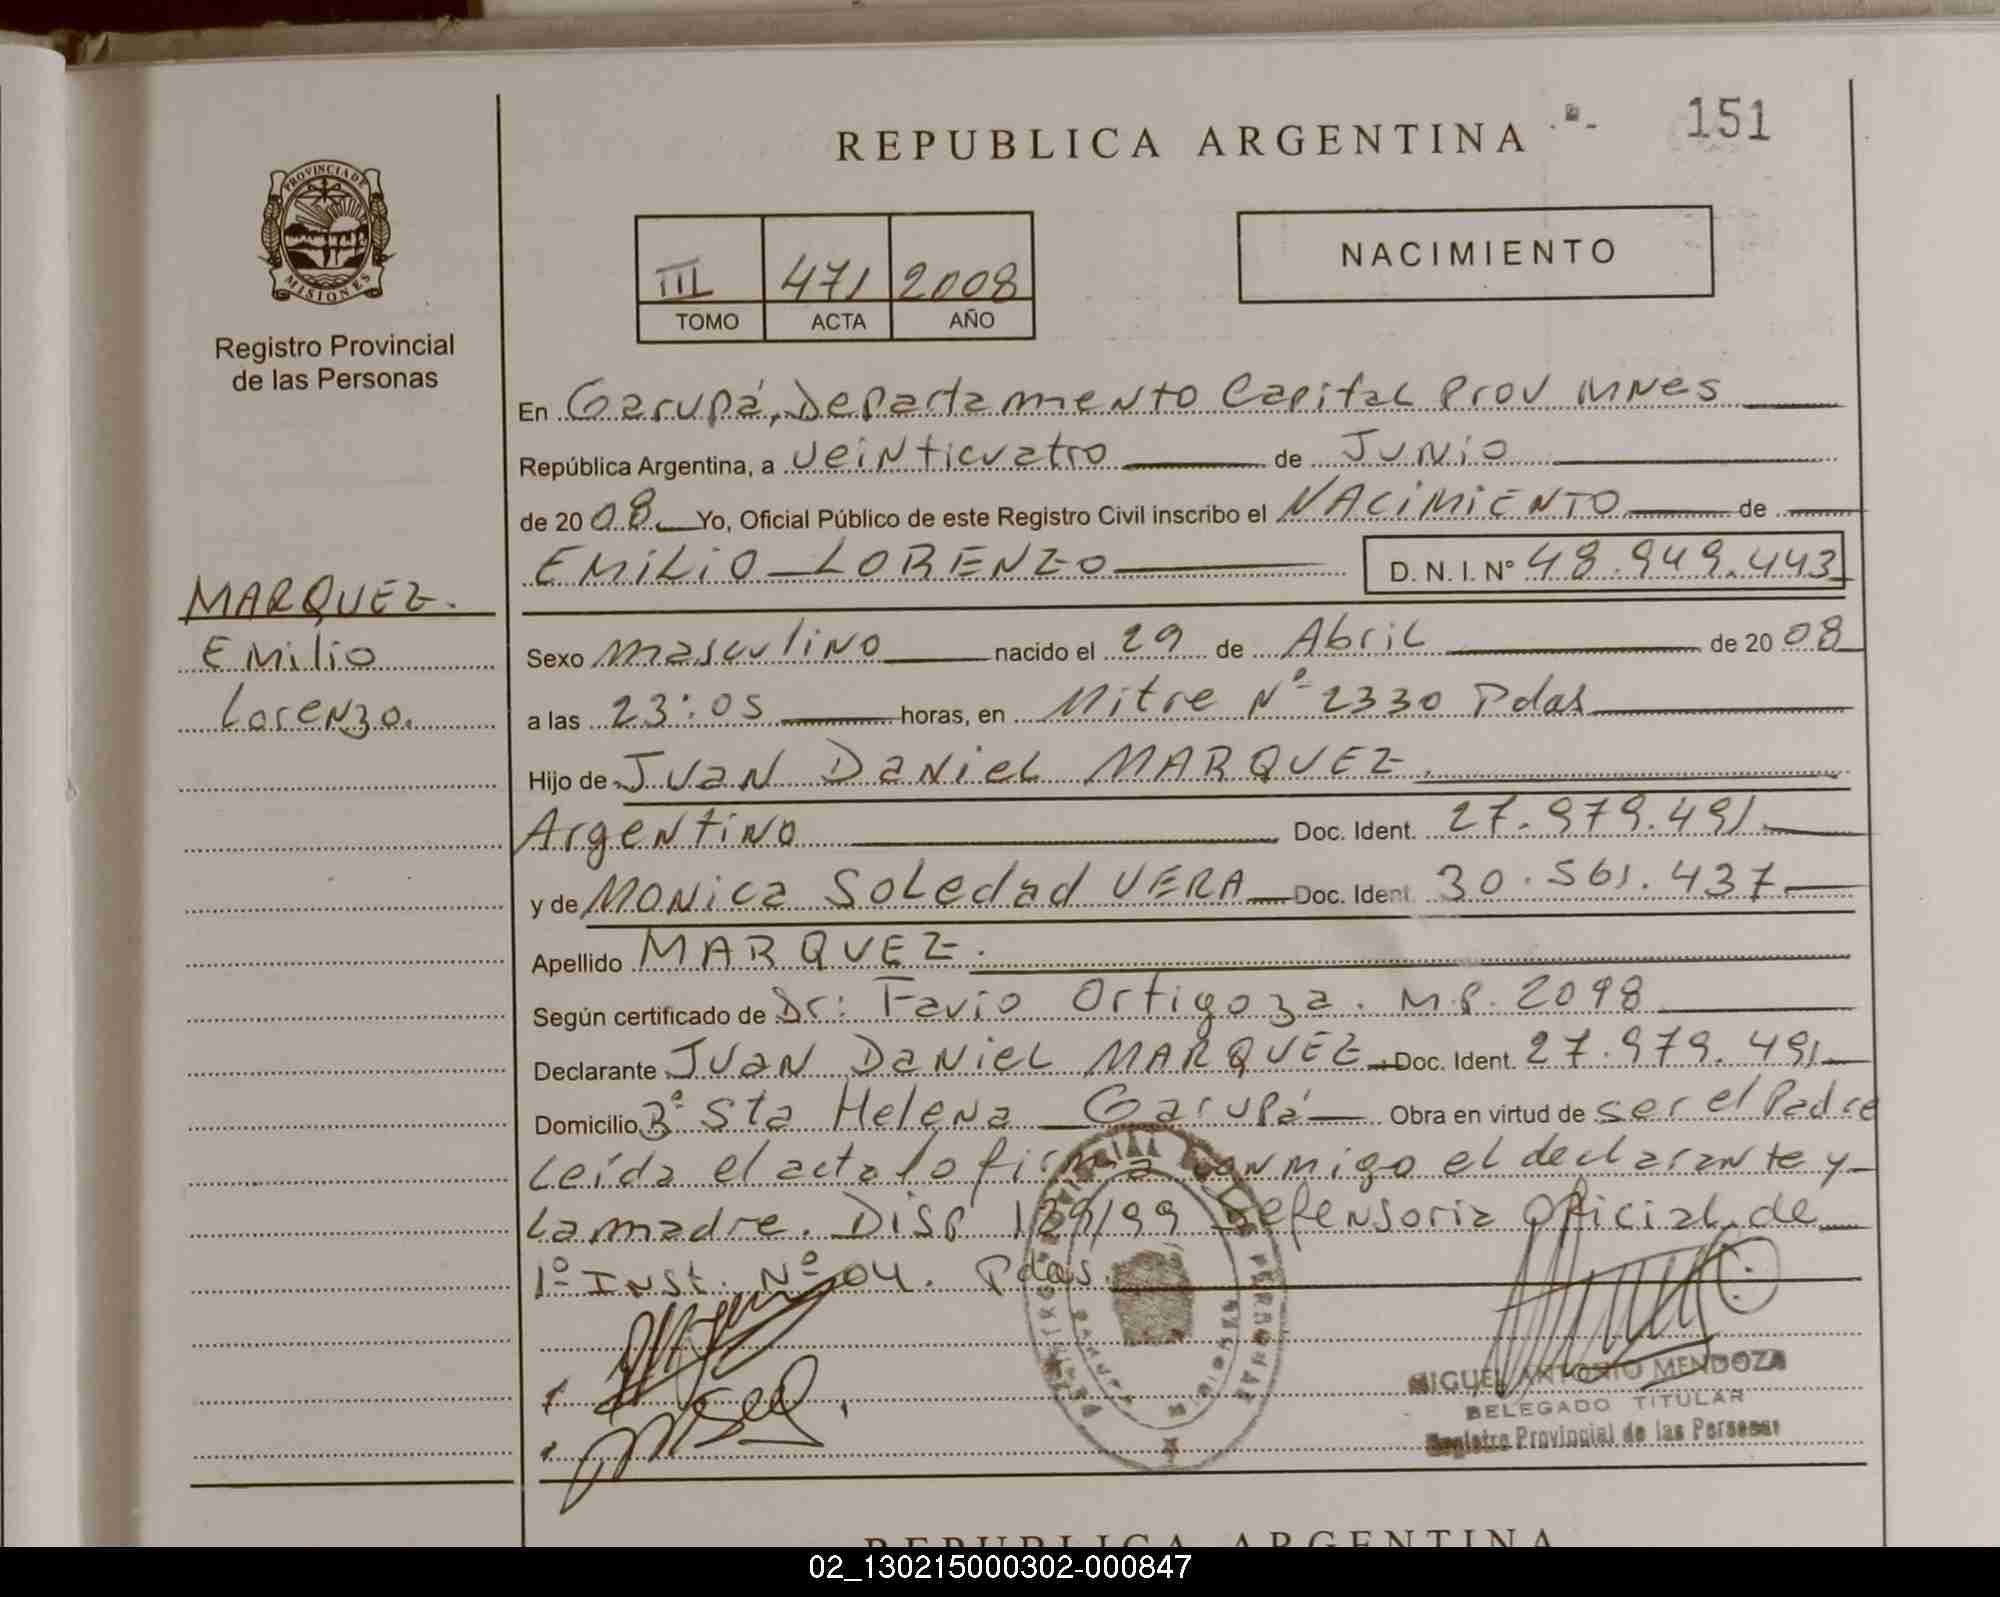 REPUBLICA ARGENTINA
151
PROVINCIA DE MISIONES
Registro Provincial
de las Personas
III 471 2008
TOMO ACTA AÑO
NACIMIENTO
En Garupá, Departamento Capital Prov MNES
República Argentina, a veinticuatro de Junio
de 2008 Yo, Oficial Público de este Registro Civil inscribo el NACIMIENTO de
EMILIO LORENZO D. N. I. Nº 48.949.443
MARQUEZ.
Emilio
Lorenzo.
Sexo masculino nacido el 29 de Abril de 2008
a las 23:05 horas, en Mitre Nº 2330 Pdas
Hijo de Juan Daniel MARQUEZ.
Argentino Doc. Ident. 27.979.491
y de MONica Soledad VERA Doc. Ident. 30.561.437
Apellido MARQUEZ.
Según certificado de Dr: Favio Ortigoza. M.P. 2098
Declarante Juan Daniel MARQUEZ. Doc. Ident. 27.979.491
Domicilio Bº Sta Helena Garupá Obra en virtud de ser el Padre
Leída el acta lo firma conmigo el declarante y
la madre. Disp 189/99 Defensoria Oficial de
1º Inst. Nº 04. Pdas.
MIGUEL ANTONIO MENDOZA
DELEGADO TITULAR
Registro Provincial de las Personas
REPUBLICA ARGENTINA
02_130215000302-000847